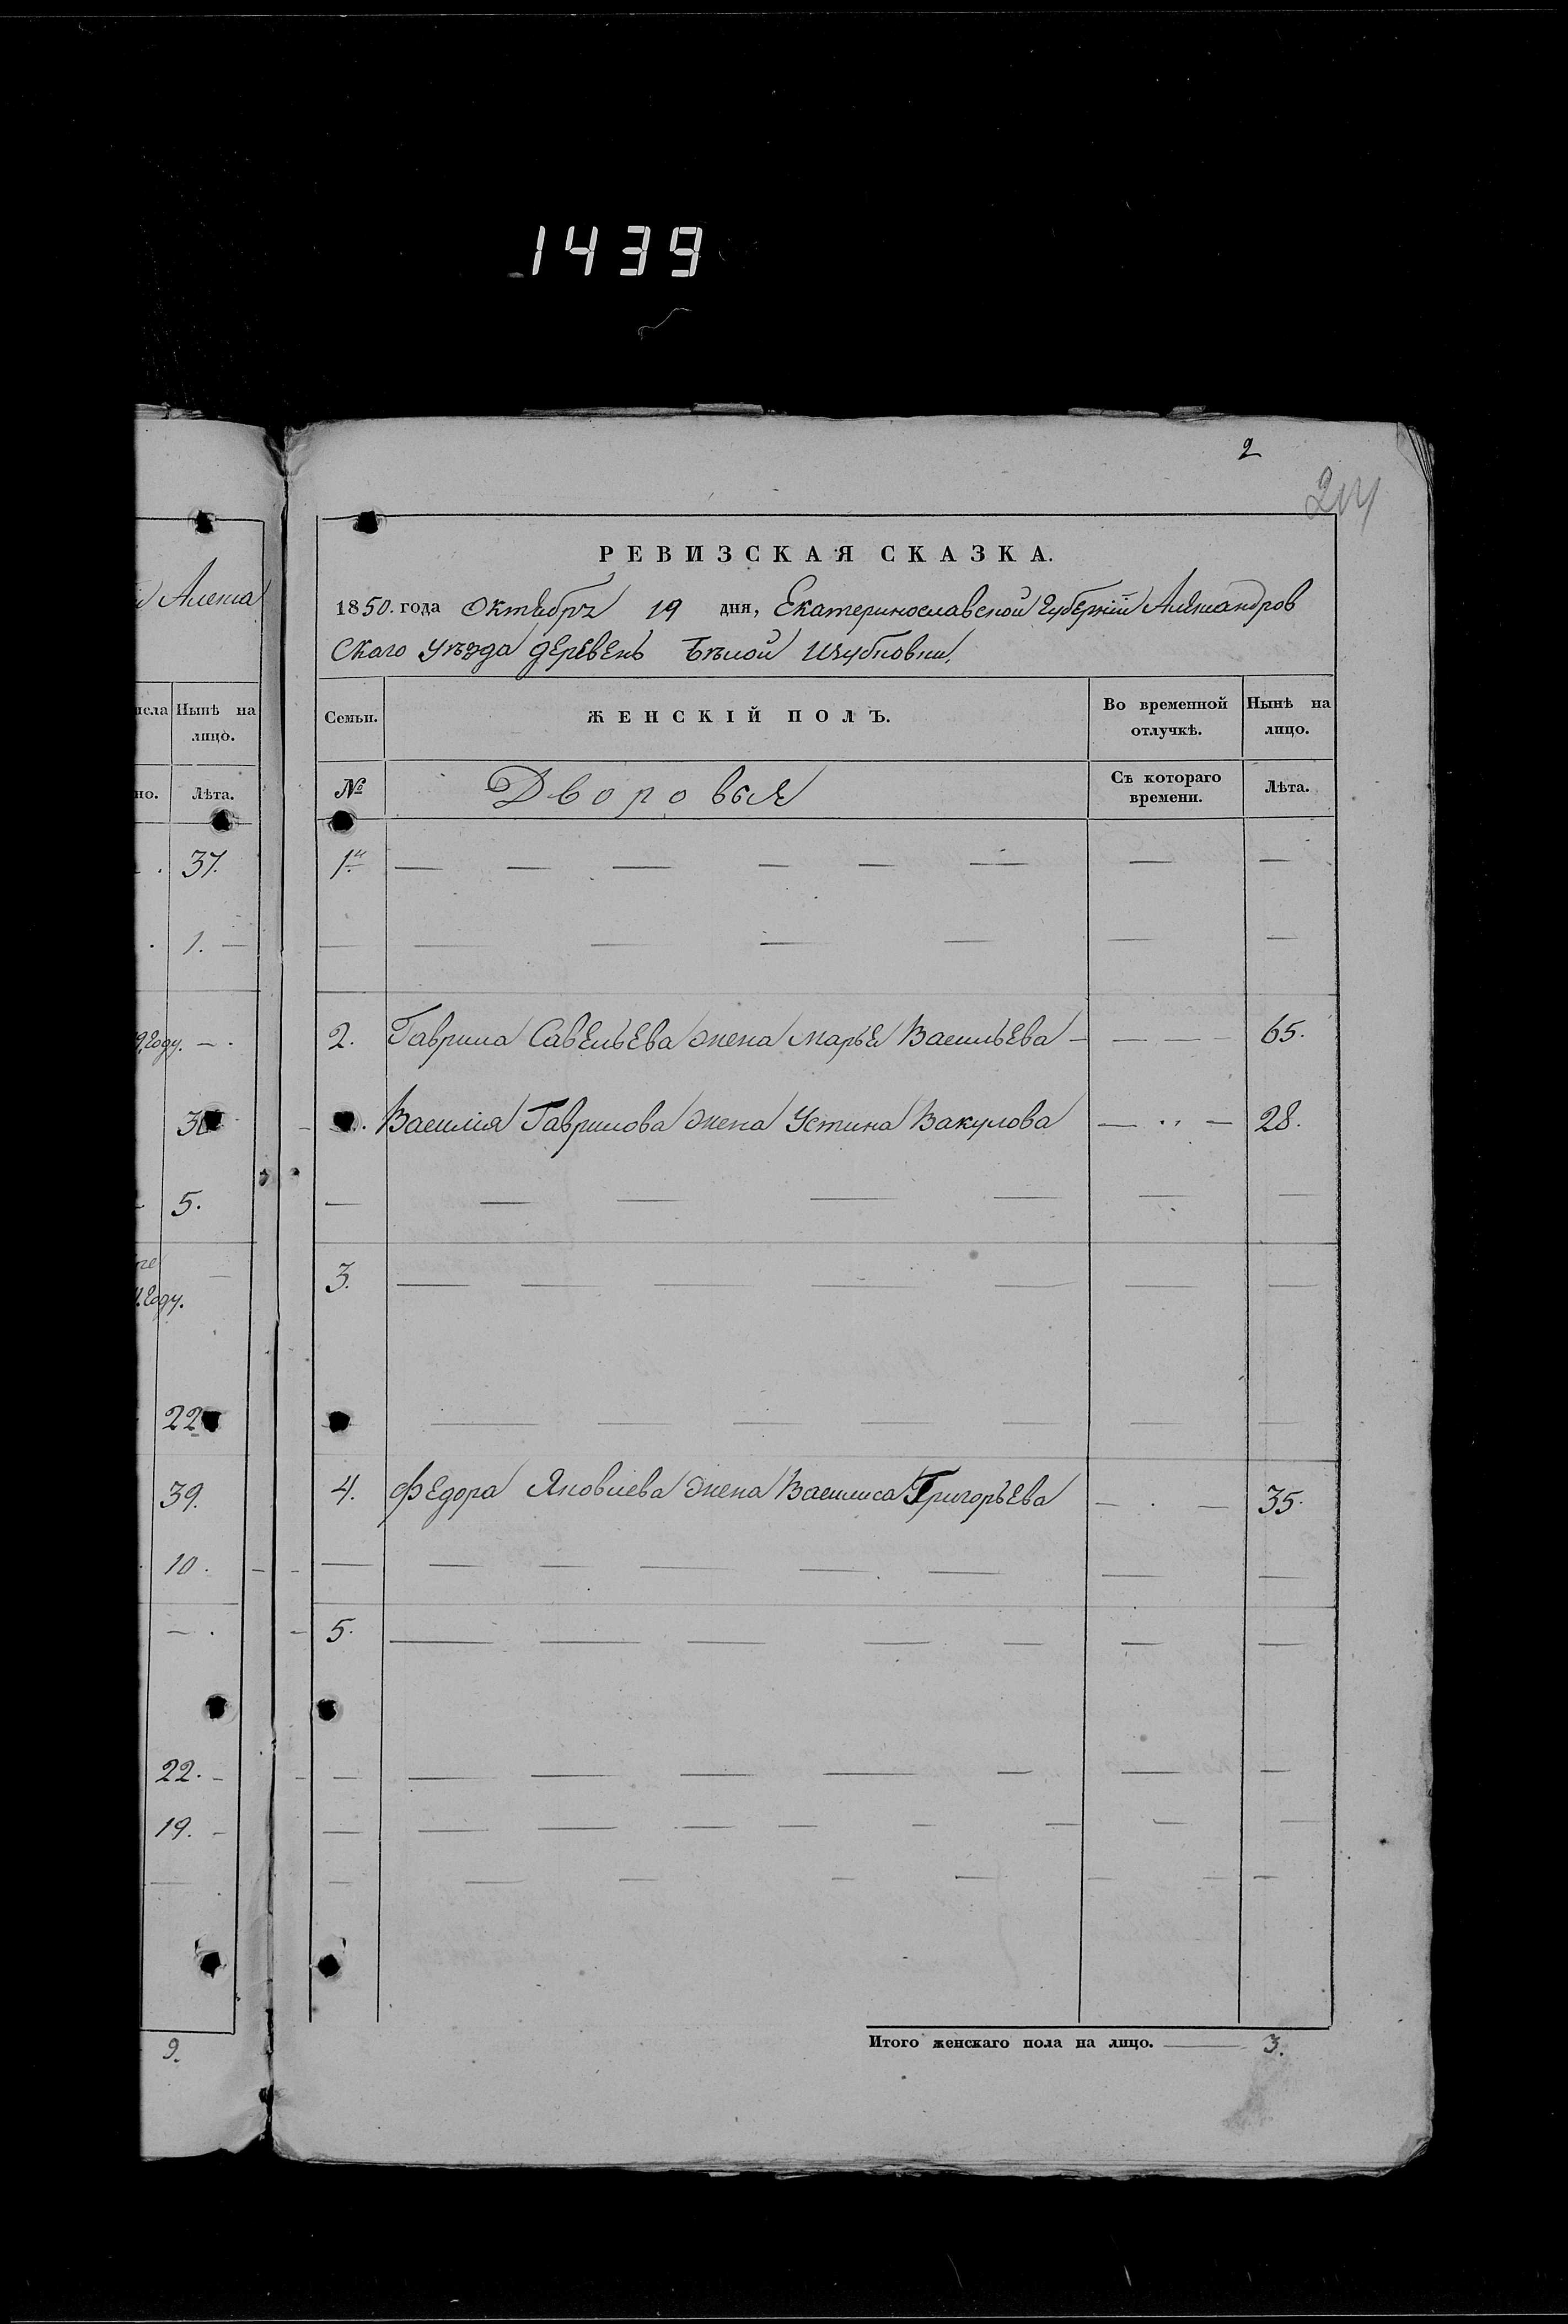 1439
2
204
РЕВИЗСКАЯ СКАЗКА.
1850. года Октября 19 дня, Екатеринославской Губернiи Александров
скаго уѣзда деревень Бѣлой
Семьи. ЖЕНСКІЙ ПОЛЪ. Во временной отлучкѣ. Нынѣ на лицо.
№ Дворовыя Съ котораго времени. Лѣта.
1й — — — — — — — —
— — — — — — —
2. Гаврила Савельева жена Марья Васильева — — — — 65.
Василія Гаврилова жена Устина Вакулова — " — 28.
— — — — — — —
3. — — — — — — —
— — — — — — —
4. Федора Яковлева жена Василиса Григорьева — . — 35.
— — — — — — — —
5. — — — — — — —
— — — — — — — —
— — — — — — — — —
— — — — — — — —
Итого женскаго пола на лицо. — 3.
Алекса
исла Нынѣ на лицо.
но. Лѣта.
37.
1. —
году. — .
5.
году.
22
39.
10.
— .
22. —
19. —
9.